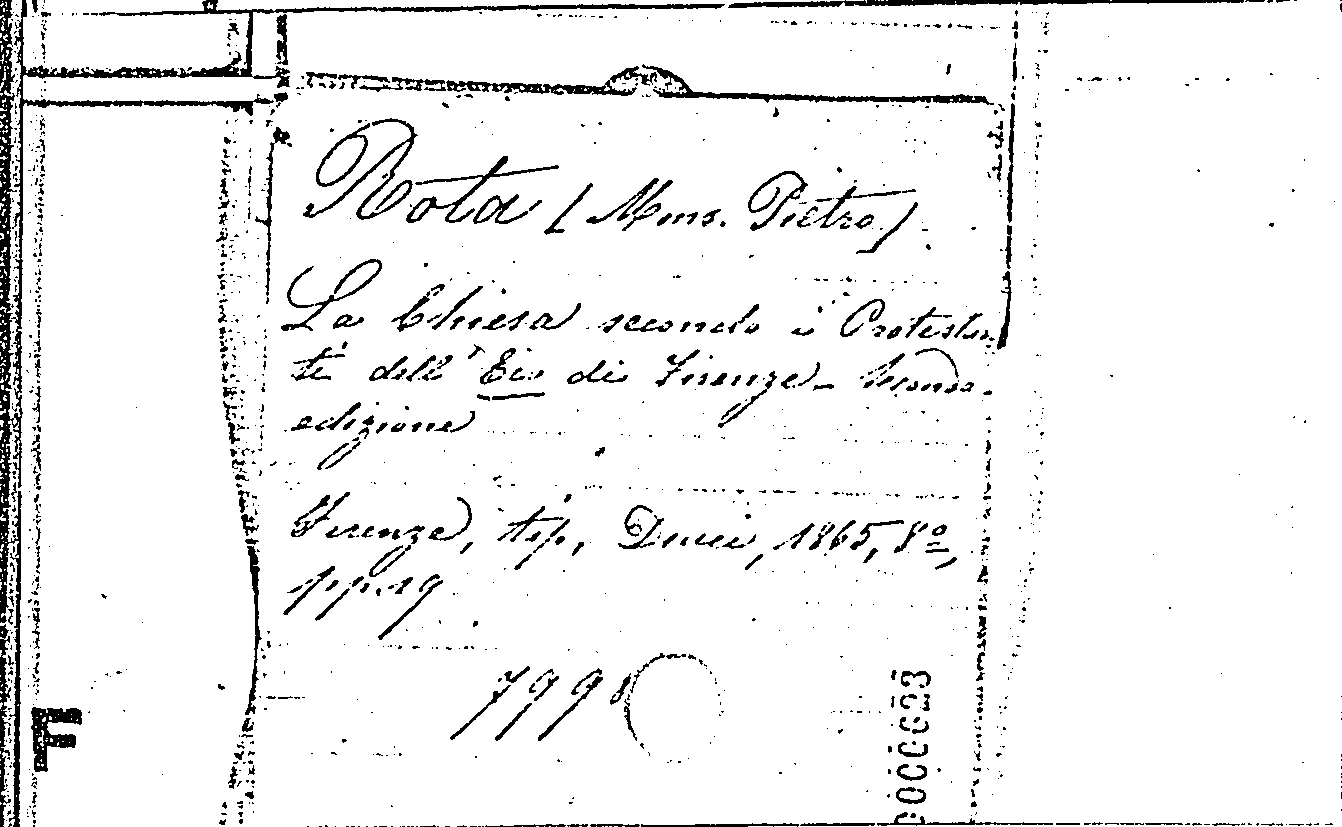 Rota (Mons. Pietro)
La Chiesa secondo i Protestan
ti dell' Eco di Firenze – Seconda
edizione
Firenze, tip. Ducci, 1865, 8º,
pp. 19
799
0000023
F